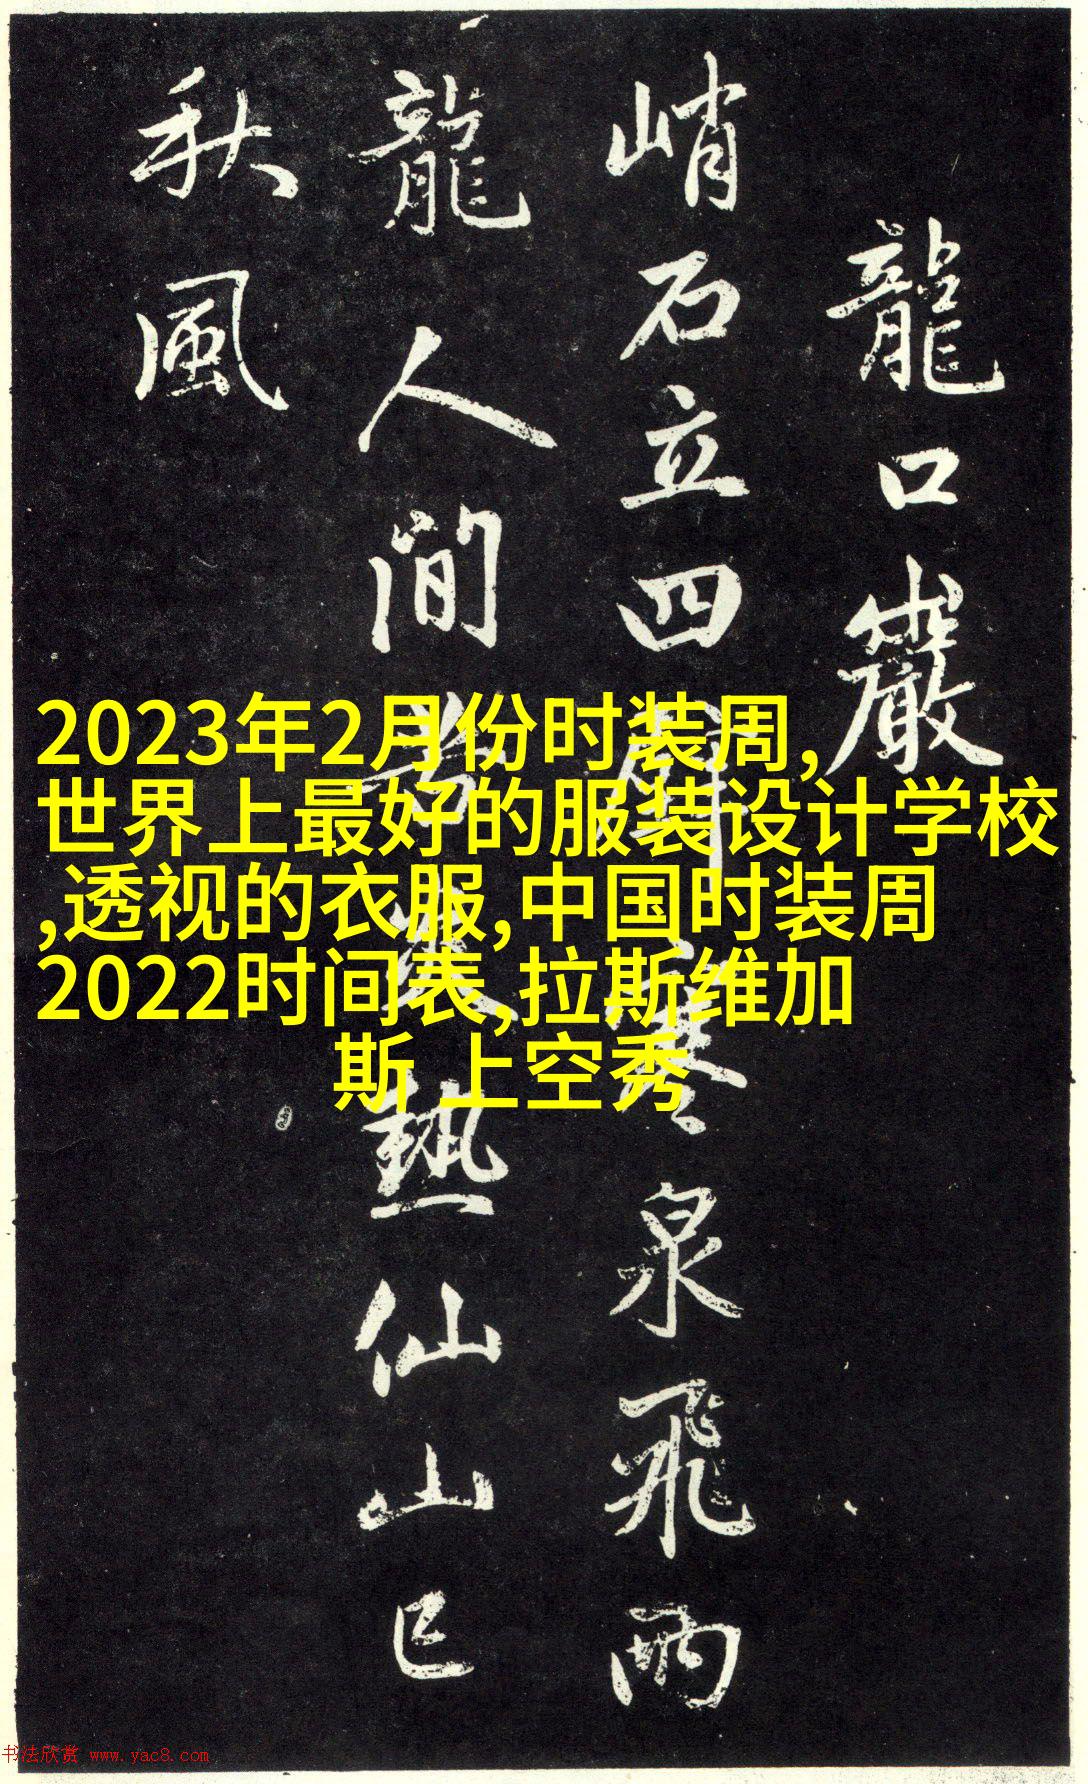 龍口巖
峭石立四寒泉飛兩
龍人間苦炎熱仙山已
秋風
2023年2月份时装周,
世界上最好的服装设计学校
,透视的衣服,中国时装周
2022时间表,拉斯维加
斯 上空秀
书法欣赏 www.yac8.com